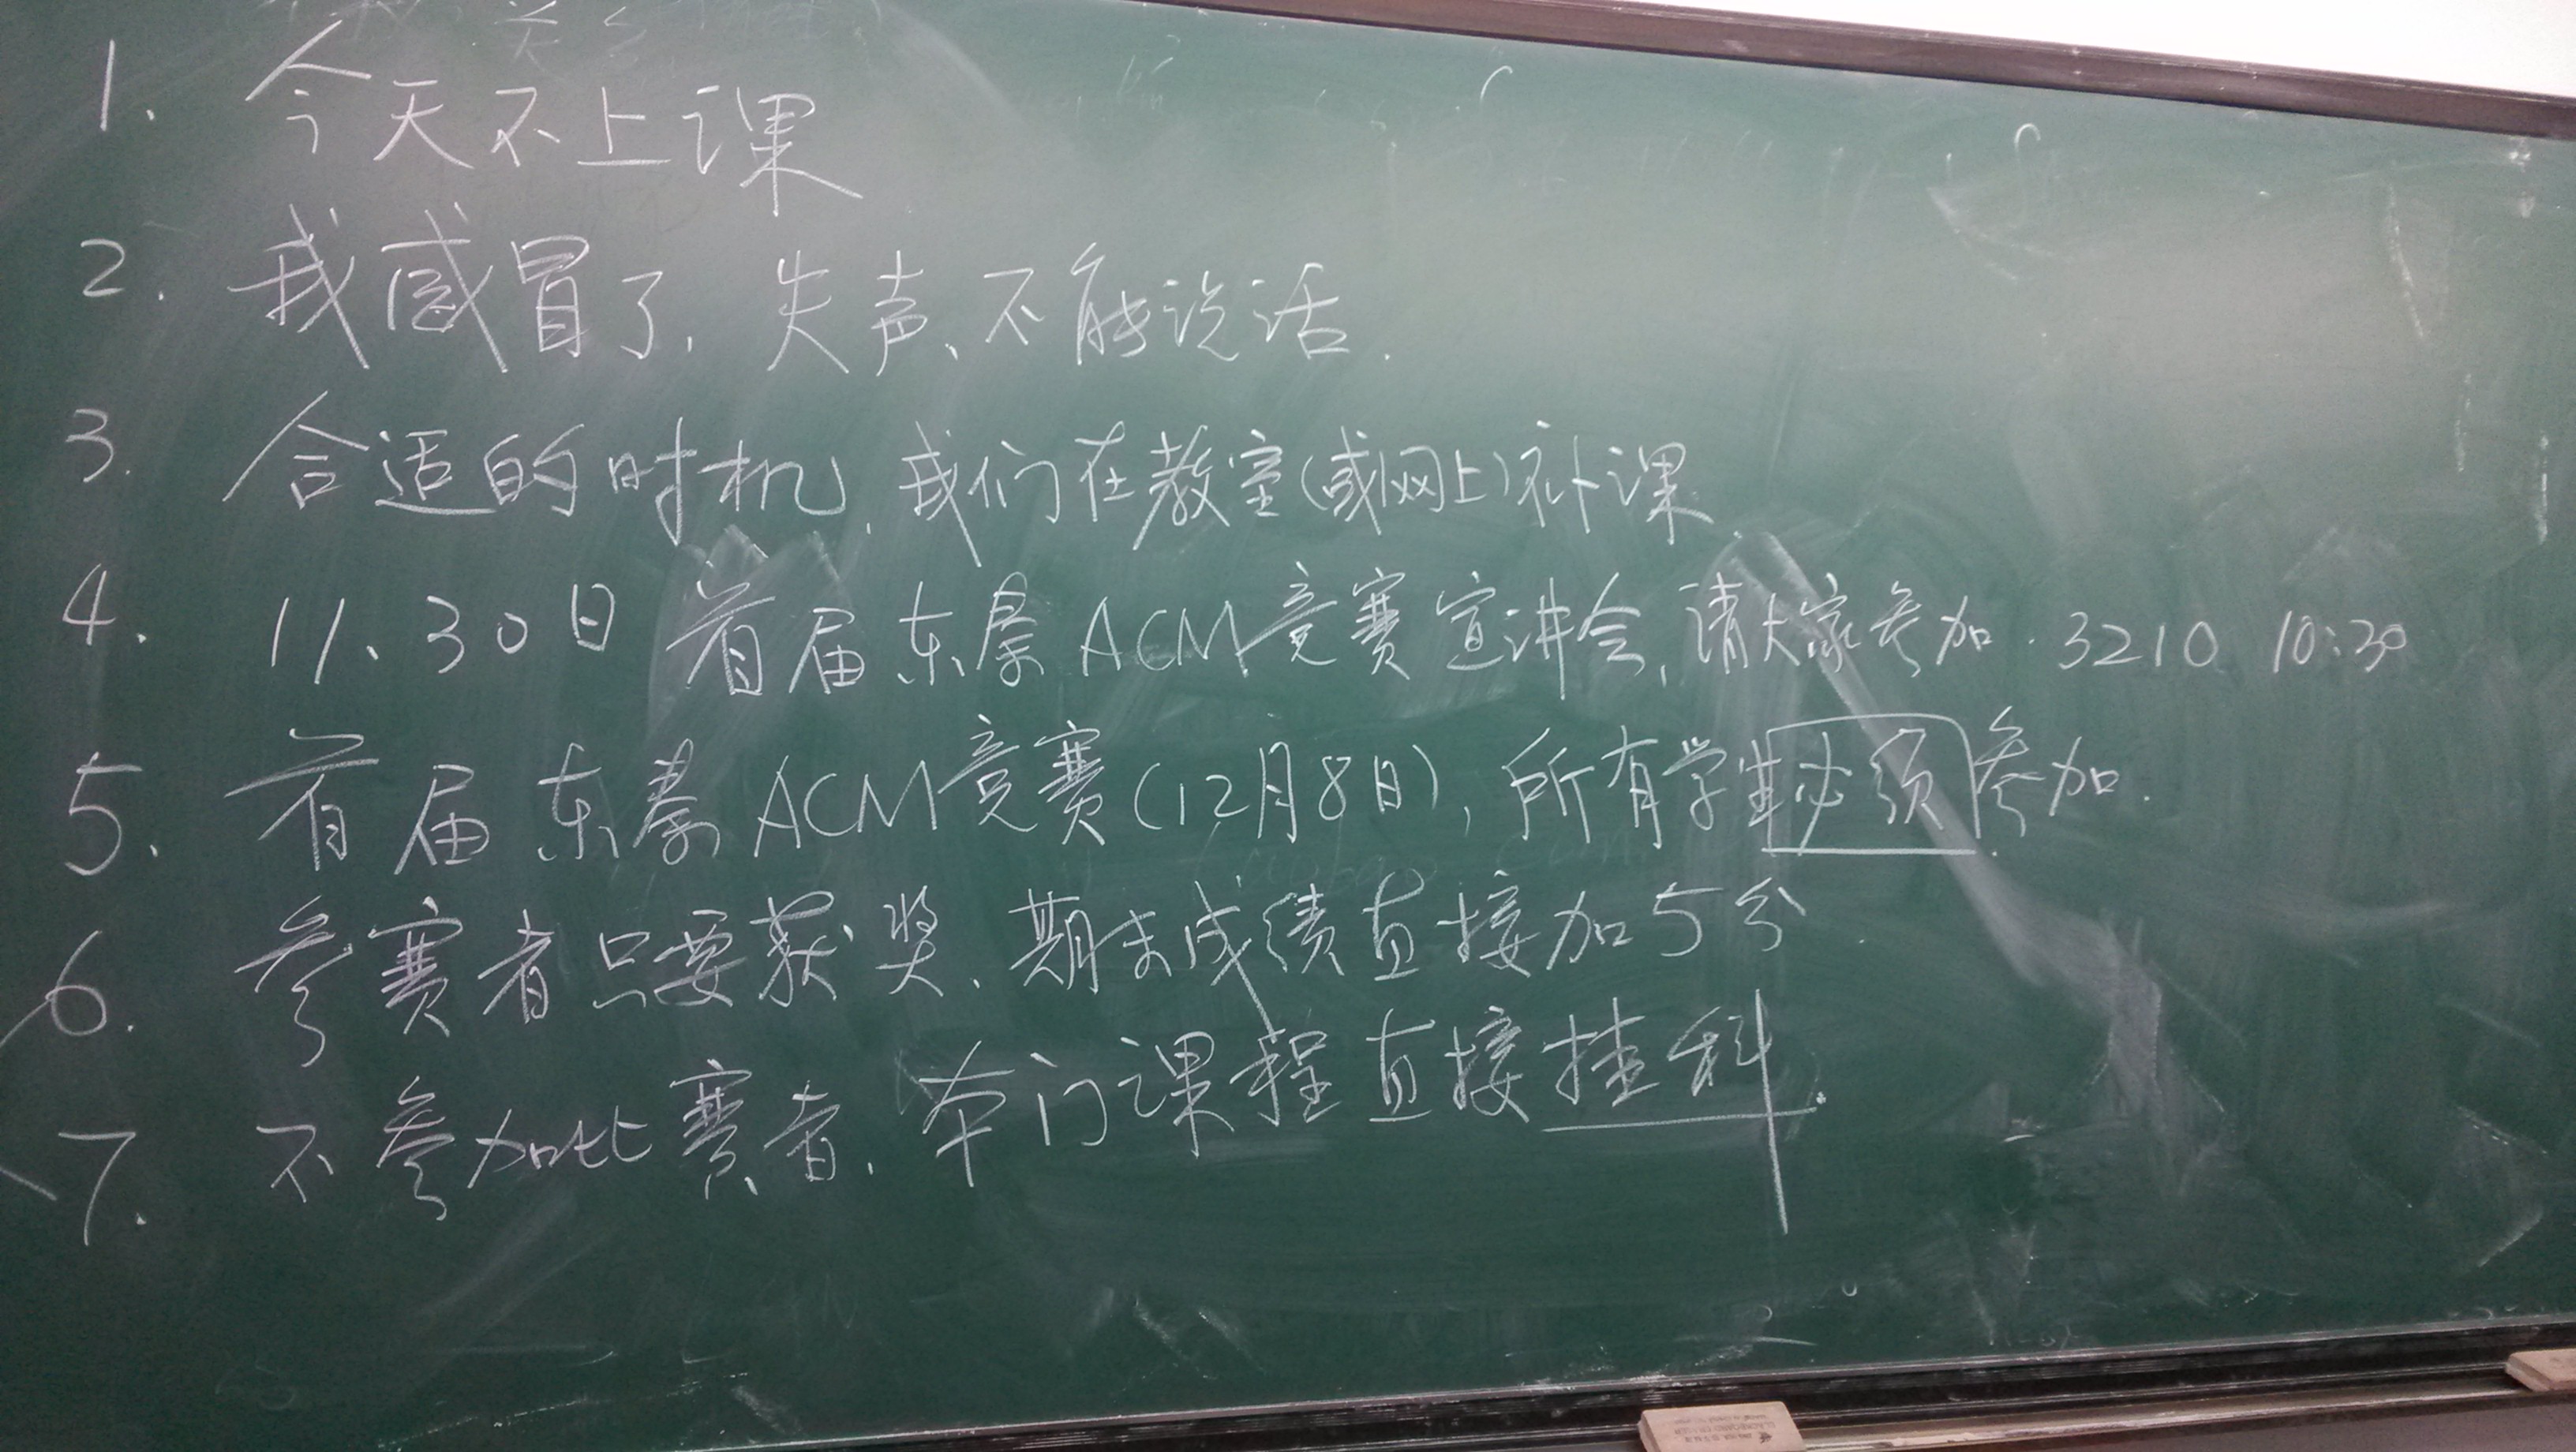 1. 今天不上课
2. 我感冒了，失声、不能说话.
3. 合适的时机，我们在教室(或网上)补课.
4. 11、30日 首届东秦ACM竞赛宣讲会，请大家参加. 3210 10:30
5. 首届东秦ACM竞赛(12月8日)，所有学生必须参加.
6. 参赛者只要获奖、期末成绩直接加5分.
7. 不参加比赛者，本门课程直接挂科.